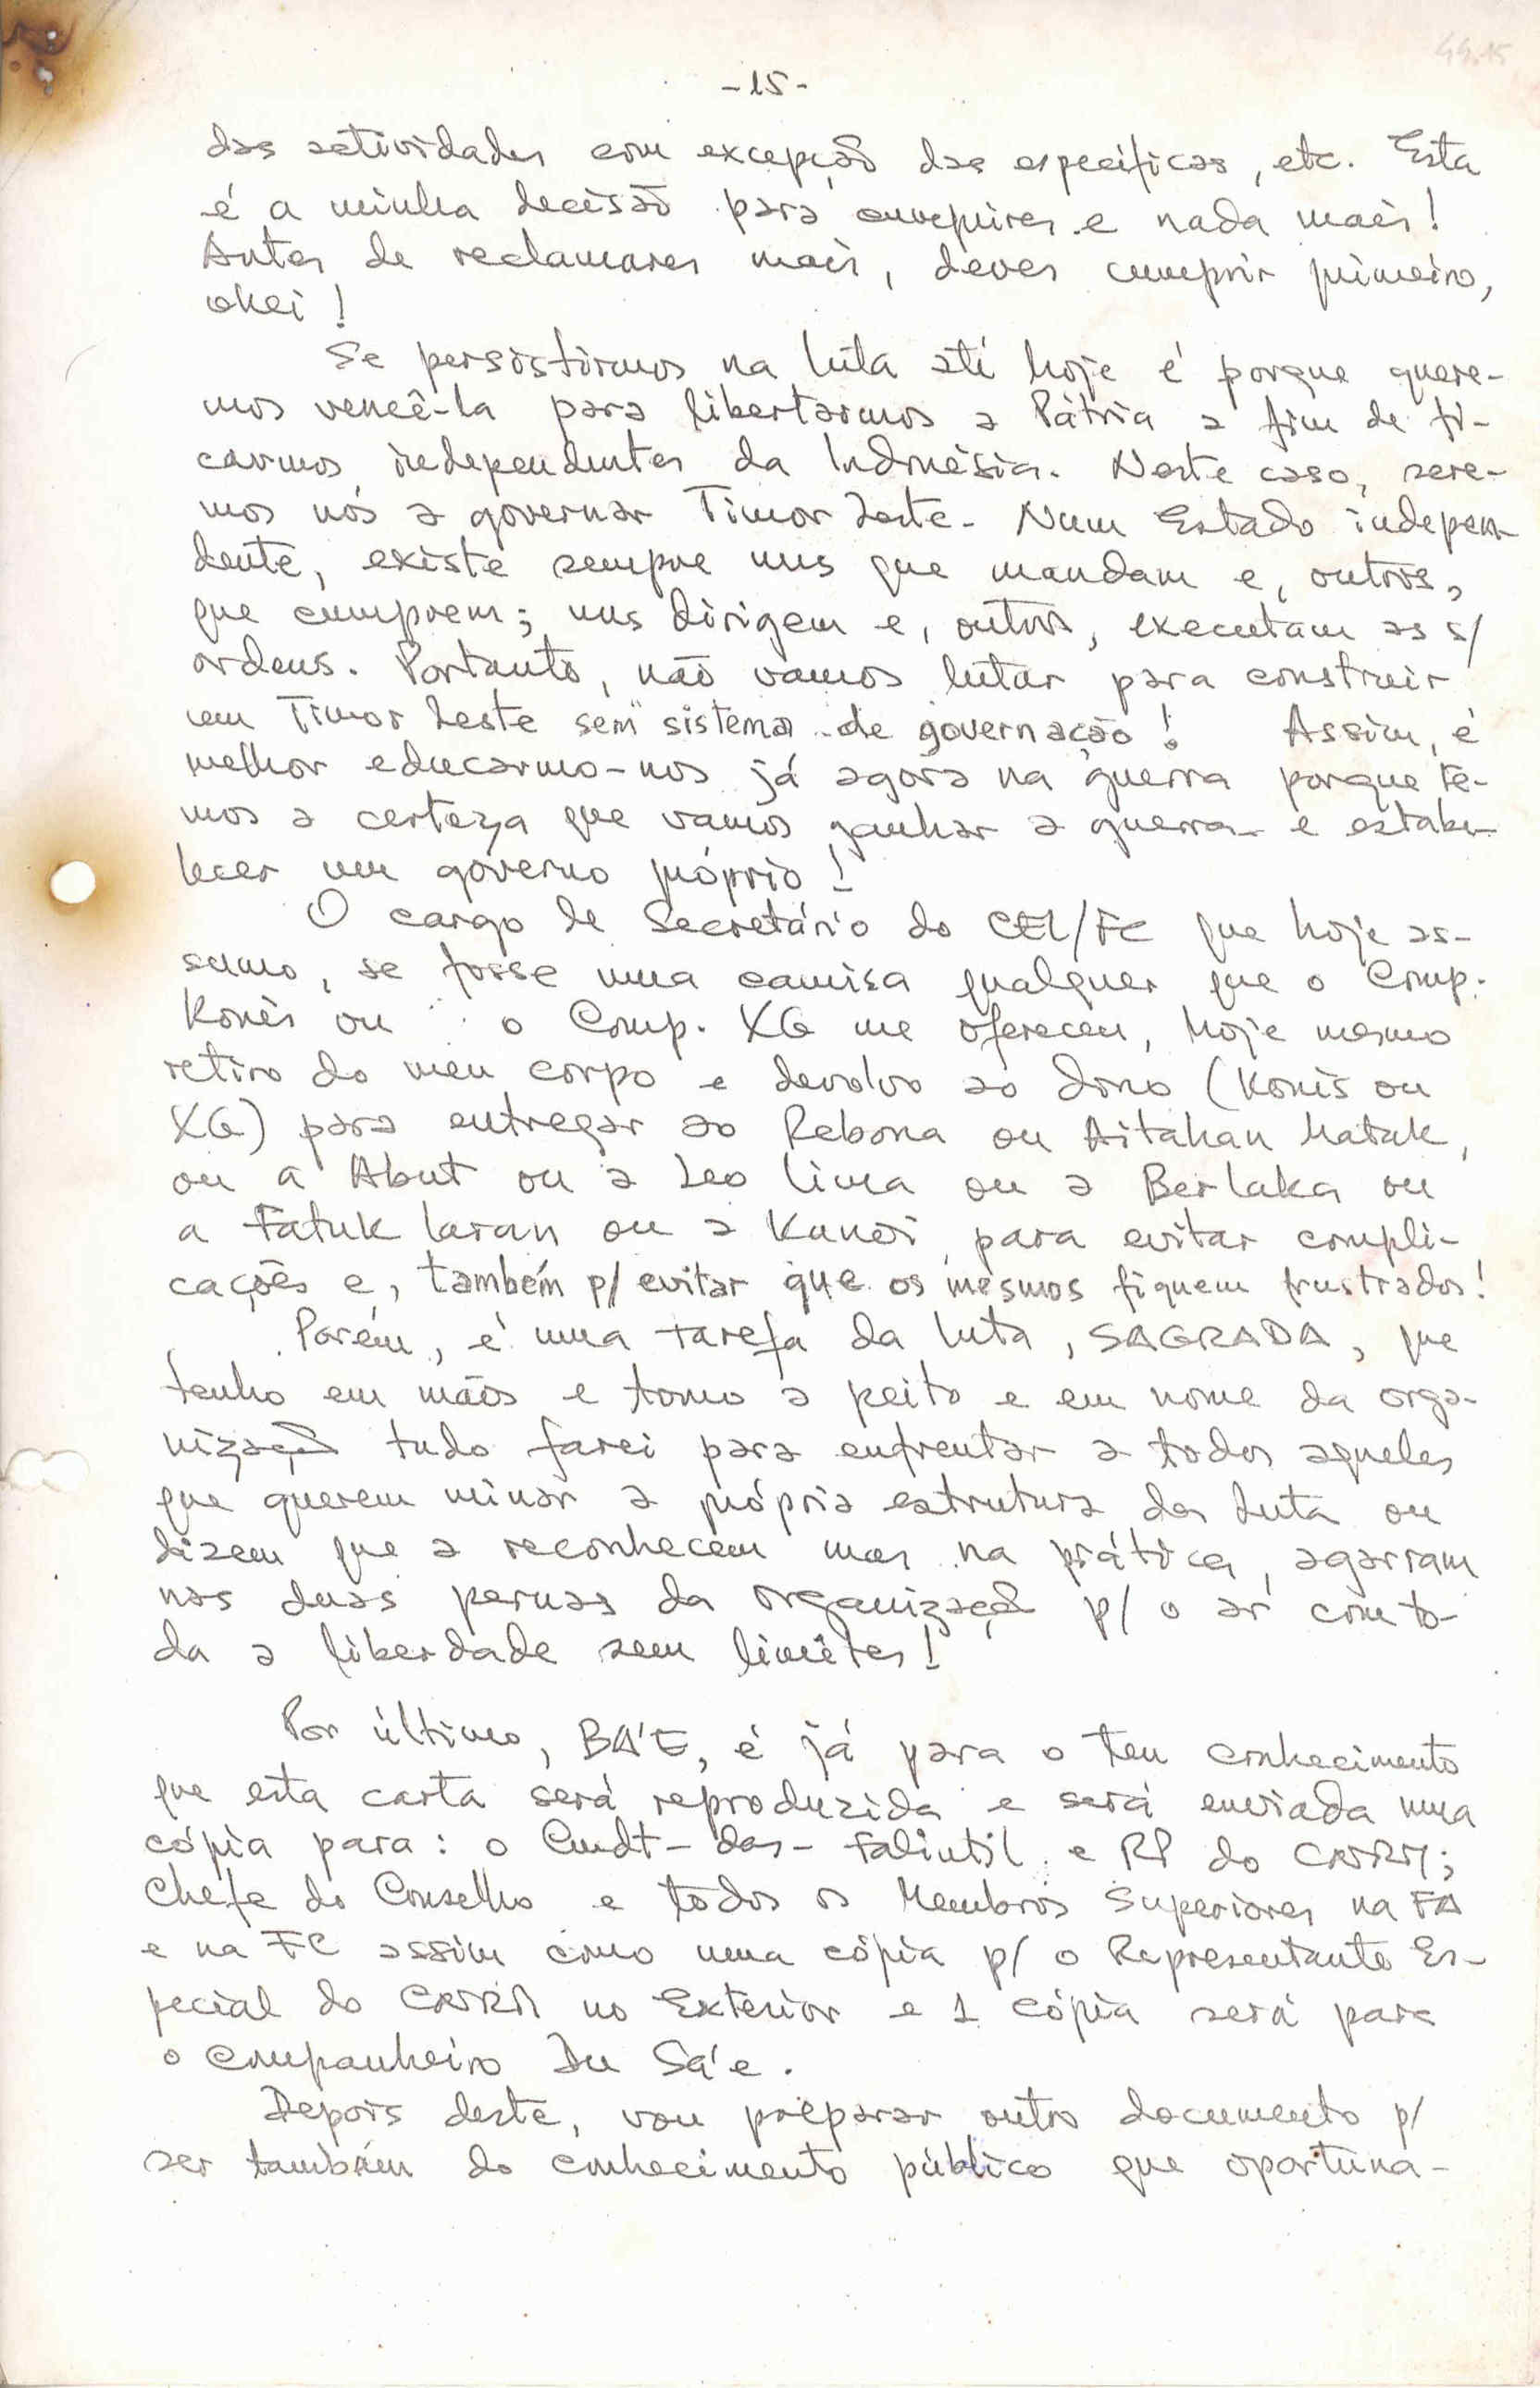 44.15
-15-
das actividades com excepção das específicas, etc. Esta
é a minha decisão para cumprires e nada mais!
Antes de reclamares mais, deves cumprir primeiro,
okei!
Se persistirmos na luta até hoje é porque quere-
mos vencê-la para libertarmos a Pátria a fim de fi-
carmos independentes da Indonésia. Neste caso, sere-
mos nós a governar Timor Leste. Num Estado indepen-
dente, existe sempre uns que mandam e, outros,
que cumprem; uns dirigem e, outros, executam as s/
ordens. Portanto, não vamos lutar para construir
um Timor Leste sem "sistema de governação! Assim, é
melhor educarmo-nos já agora na guerra porque te-
mos a certeza que vamos ganhar a guerra e estabe-
lecer um governo próprio!
O cargo de Secretário do CEL/FC que hoje as-
sumo, se fosse uma camisa qualquer que o Comp.
Konis ou o Comp. XG me ofereceu, hoje mesmo
retiro do meu corpo e devolvo ao dono (Konis ou
XG) para entregar ao Rebona ou Aitahan Matak,
ou a Abut ou a Leo Lima ou a Berlaka ou
a Fatuk Laran ou a Kunoi, para evitar compli-
cações e, também p/ evitar que os mesmos fiquem frustrados!
Porém, é uma tarefa da luta, SAGRADA, que
tenho em mãos e tomo a peito e em nome da orga-
nização tudo farei para enfrentar a todos aqueles
que querem minar a própria estrutura da Luta ou
dizem que a reconhecem mas na prática, agarram
nas duas pernas da organização p/ o ar com to-
da a liberdade sem limites!
Por último, BÁ'E, é já para o teu conhecimento
que esta carta será reproduzida e será enviada uma
cópia para: o Cmdt-das-Falintil e RP do CNRM;
Chefe do Conselho e todos os Membros Superiores na FA
e na FC assim como uma cópia p/ o Representante Es-
pecial do CNRM no Exterior e 1 cópia será para
o companheiro Du Sá'e.
Depois deste, vou preparar outro documento p/
ser também do conhecimento público que oportuna-